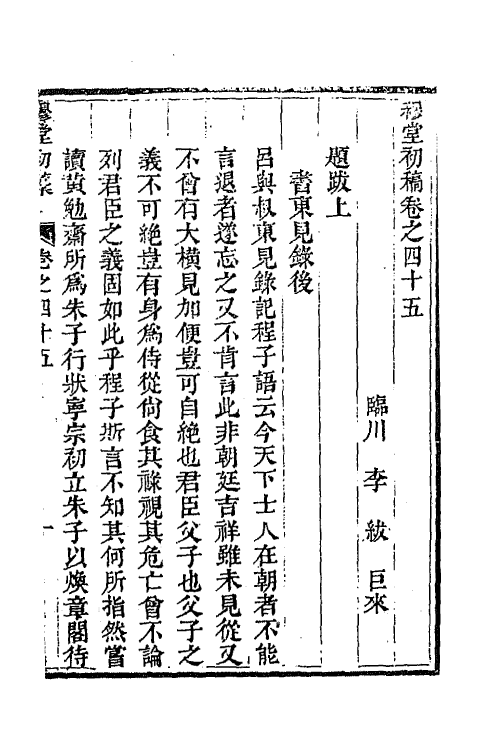 穆堂初稿卷之四十五
臨川 李 紱 巨來
題跋上
書東見錄後
呂與叔東見錄記程子語云今天下士人在朝者不能
言退者遂忘之又不肯言此非朝廷吉祥雖未見從又
不曾有大橫見加便豈可自絶也君臣父子也父子之
義不可絶豈有身為侍從尙食其祿視其危亡曾不論
列君臣之義固如此乎程子斯言不知其何所指然嘗
讀黃勉齋所為朱子行狀寧宗初立朱子以煥章閣待
穆堂初稾
卷之四十五
一